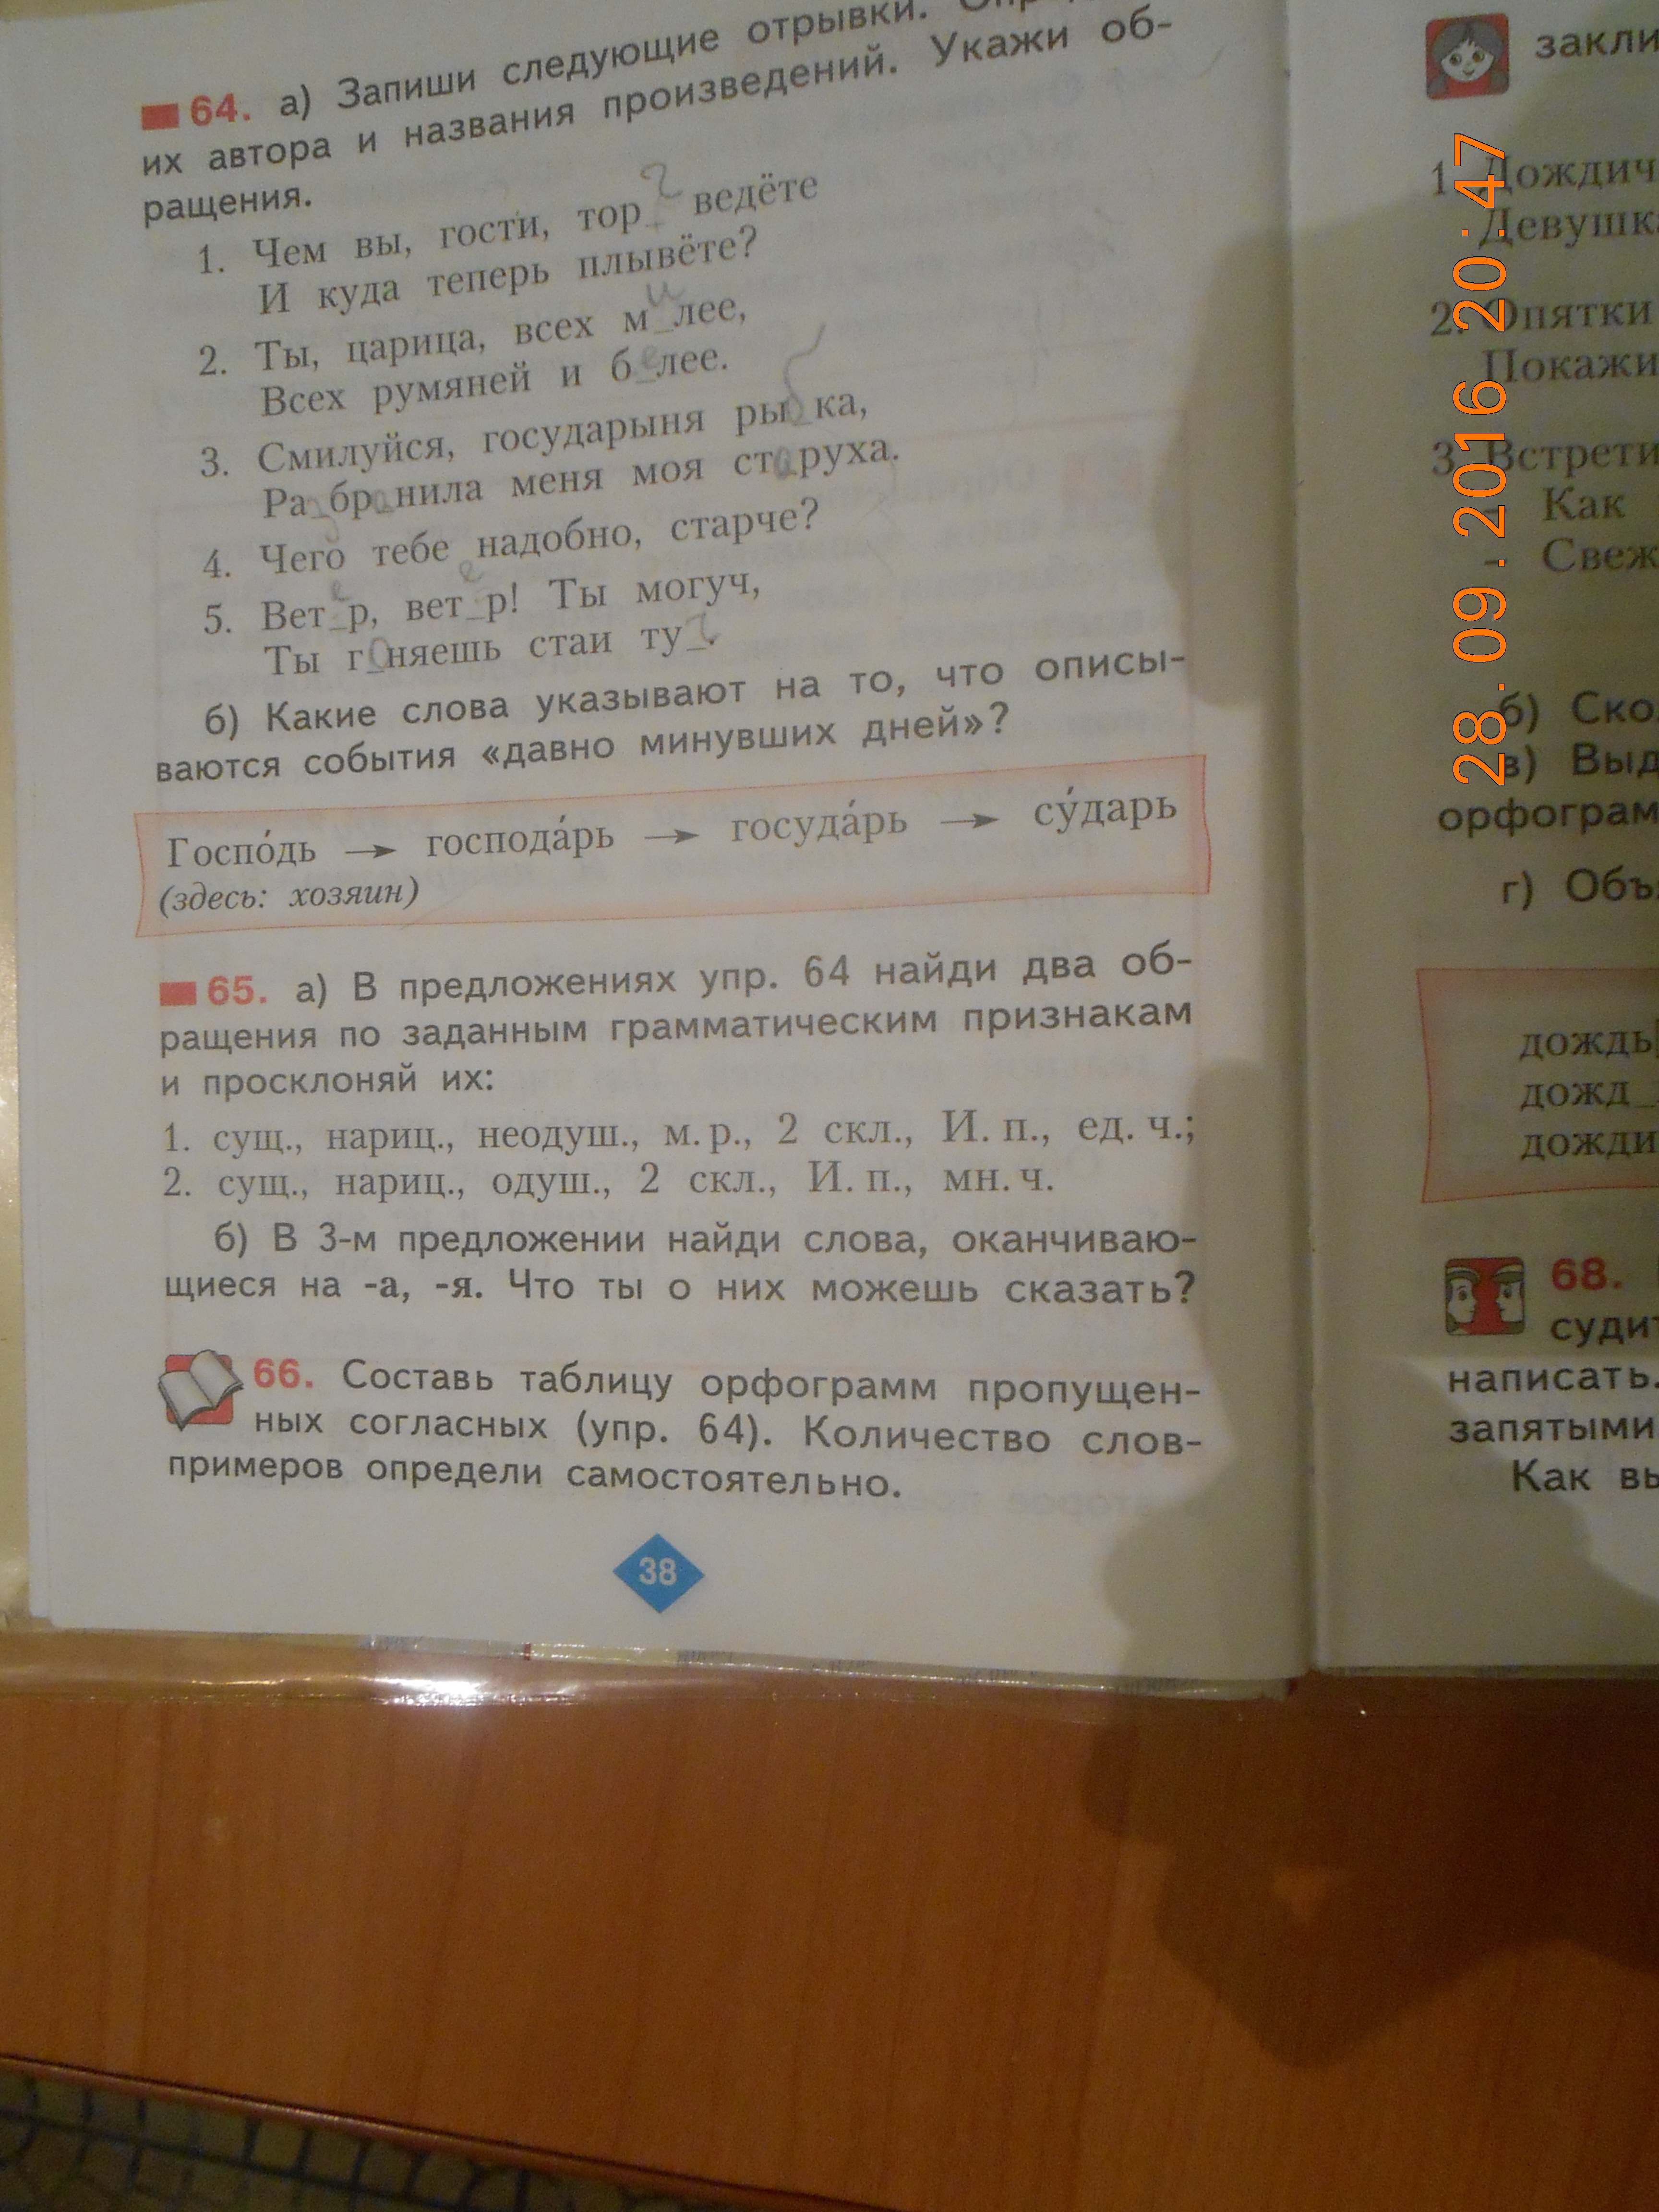 64. а) Запиши следующие отрывки.
их автора и названия произведений. Укажи об-
ращения.
1. Чем вы, гости, тор_г ведёте
И куда теперь плывёте?
2. Ты, царица, всех м_илее,
Всех румяней и б_елее.
3. Смилуйся, государыня ры_бка,
Ра_збр_анила меня моя ст_аруха.
4. Чего тебе надобно, старче?
5. Вет_ер, вет_ер! Ты могуч,
Ты г_оняешь стаи ту_ч.
б) Какие слова указывают на то, что описы-
ваются события «давно минувших дней»?
Госпо́дь → господа́рь → госуда́рь → су́дарь
(здесь: хозяин)
65. а) В предложениях упр. 64 найди два об-
ращения по заданным грамматическим признакам
и просклоняй их:
1. сущ., нариц., неодуш., м. р., 2 скл., И. п., ед. ч.;
2. сущ., нариц., одуш., 2 скл., И. п., мн. ч.
б) В 3-м предложении найди слова, оканчиваю-
щиеся на -а, -я. Что ты о них можешь сказать?
66. Составь таблицу орфограмм пропущен-
ных согласных (упр. 64). Количество слов-
примеров определи самостоятельно.
38
закли
1. Дождич
Девушка
2. Опятки
Покажи
3. Встрети
- Как
- Свеж
б) Ско
в) Выд
орфограм
г) Объ
дождь
дожд_
дожди
68.
судит
написать.
запятыми
Как вы
28.09.2016 20:47